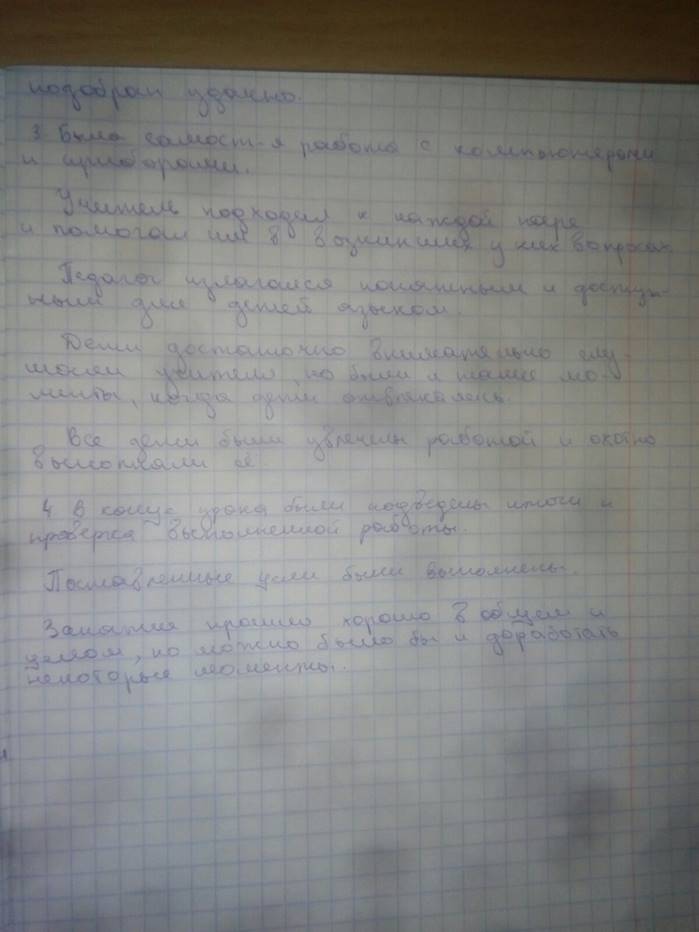 подобран удачно.
3. Была самост-я работа с компьютерами
и приборами.
Учитель подходил к каждой паре
и помогал им в возникших у них вопросах.
Педагог излагался понятным и доступ-
ным для детей языком.
Дети достаточно внимательно слу-
шали учителя, но были и такие мо-
менты, когда дети отвлекались.
Все дети были увлечены работой и охотно
выполняли её.
4. В конце урока были подведены итоги и
проверка выполненной работы.
Поставленные цели были выполнены.
Занятия прошли хорошо в общем и
целом, но можно было бы и доработать
некоторые моменты.